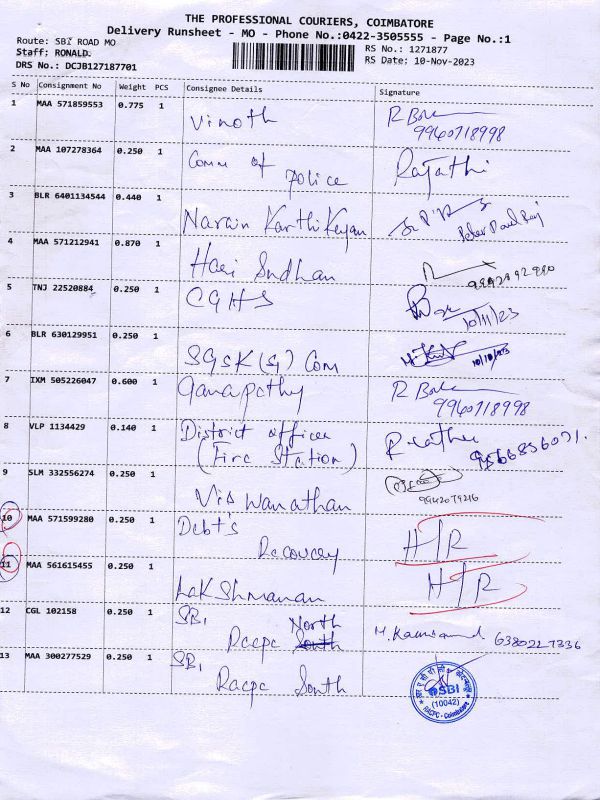 THE PROFESSIONAL COURIERS, COIMBATORE
Delivery Runsheet - MO - Phone No.:0422-3505555 - Page No.:1
Route: SBI ROAD MO
RS No.: 1271877
Staff: RONALD.
RS Date: 10-Nov-2023
DRS No.: DCJB127187701
S No Consignment No Weight PCS Consignee Details Signature
1 MAA 571859553 0.775 1 Vinoth
9940718998
2 MAA 107278364 0.250 1 Comm of Police Rajathi
3 BLR 6401134544 0.440 1 Narain Karthi Keyan Peter Paul Raj
4 MAA 571212941 0.870 1 Hari Sudhan
5 TNJ 22520884 0.250 1 CGHS
10/11/23
6 BLR 630129951 0.250 1 SGSK (G) Com
7 IXM 505226047 0.600 1 Ganapathy
9940718998
8 VLP 1134429 0.140 1 District officer
(Fire Station)
9 SLM 332556274 0.250 1 Viswanathan
9942079216
10 MAA 571599280 0.250 1 Debt's
Recovery H/R
11 MAA 561615455 0.250 1 Lakshmanan H/R
12 CGL 102158 0.250 1 SBI
Racpc North South
13 MAA 300277529 0.250 1 SBI
Racpc South
SBI
(10042)
RACPC - Coimbatore